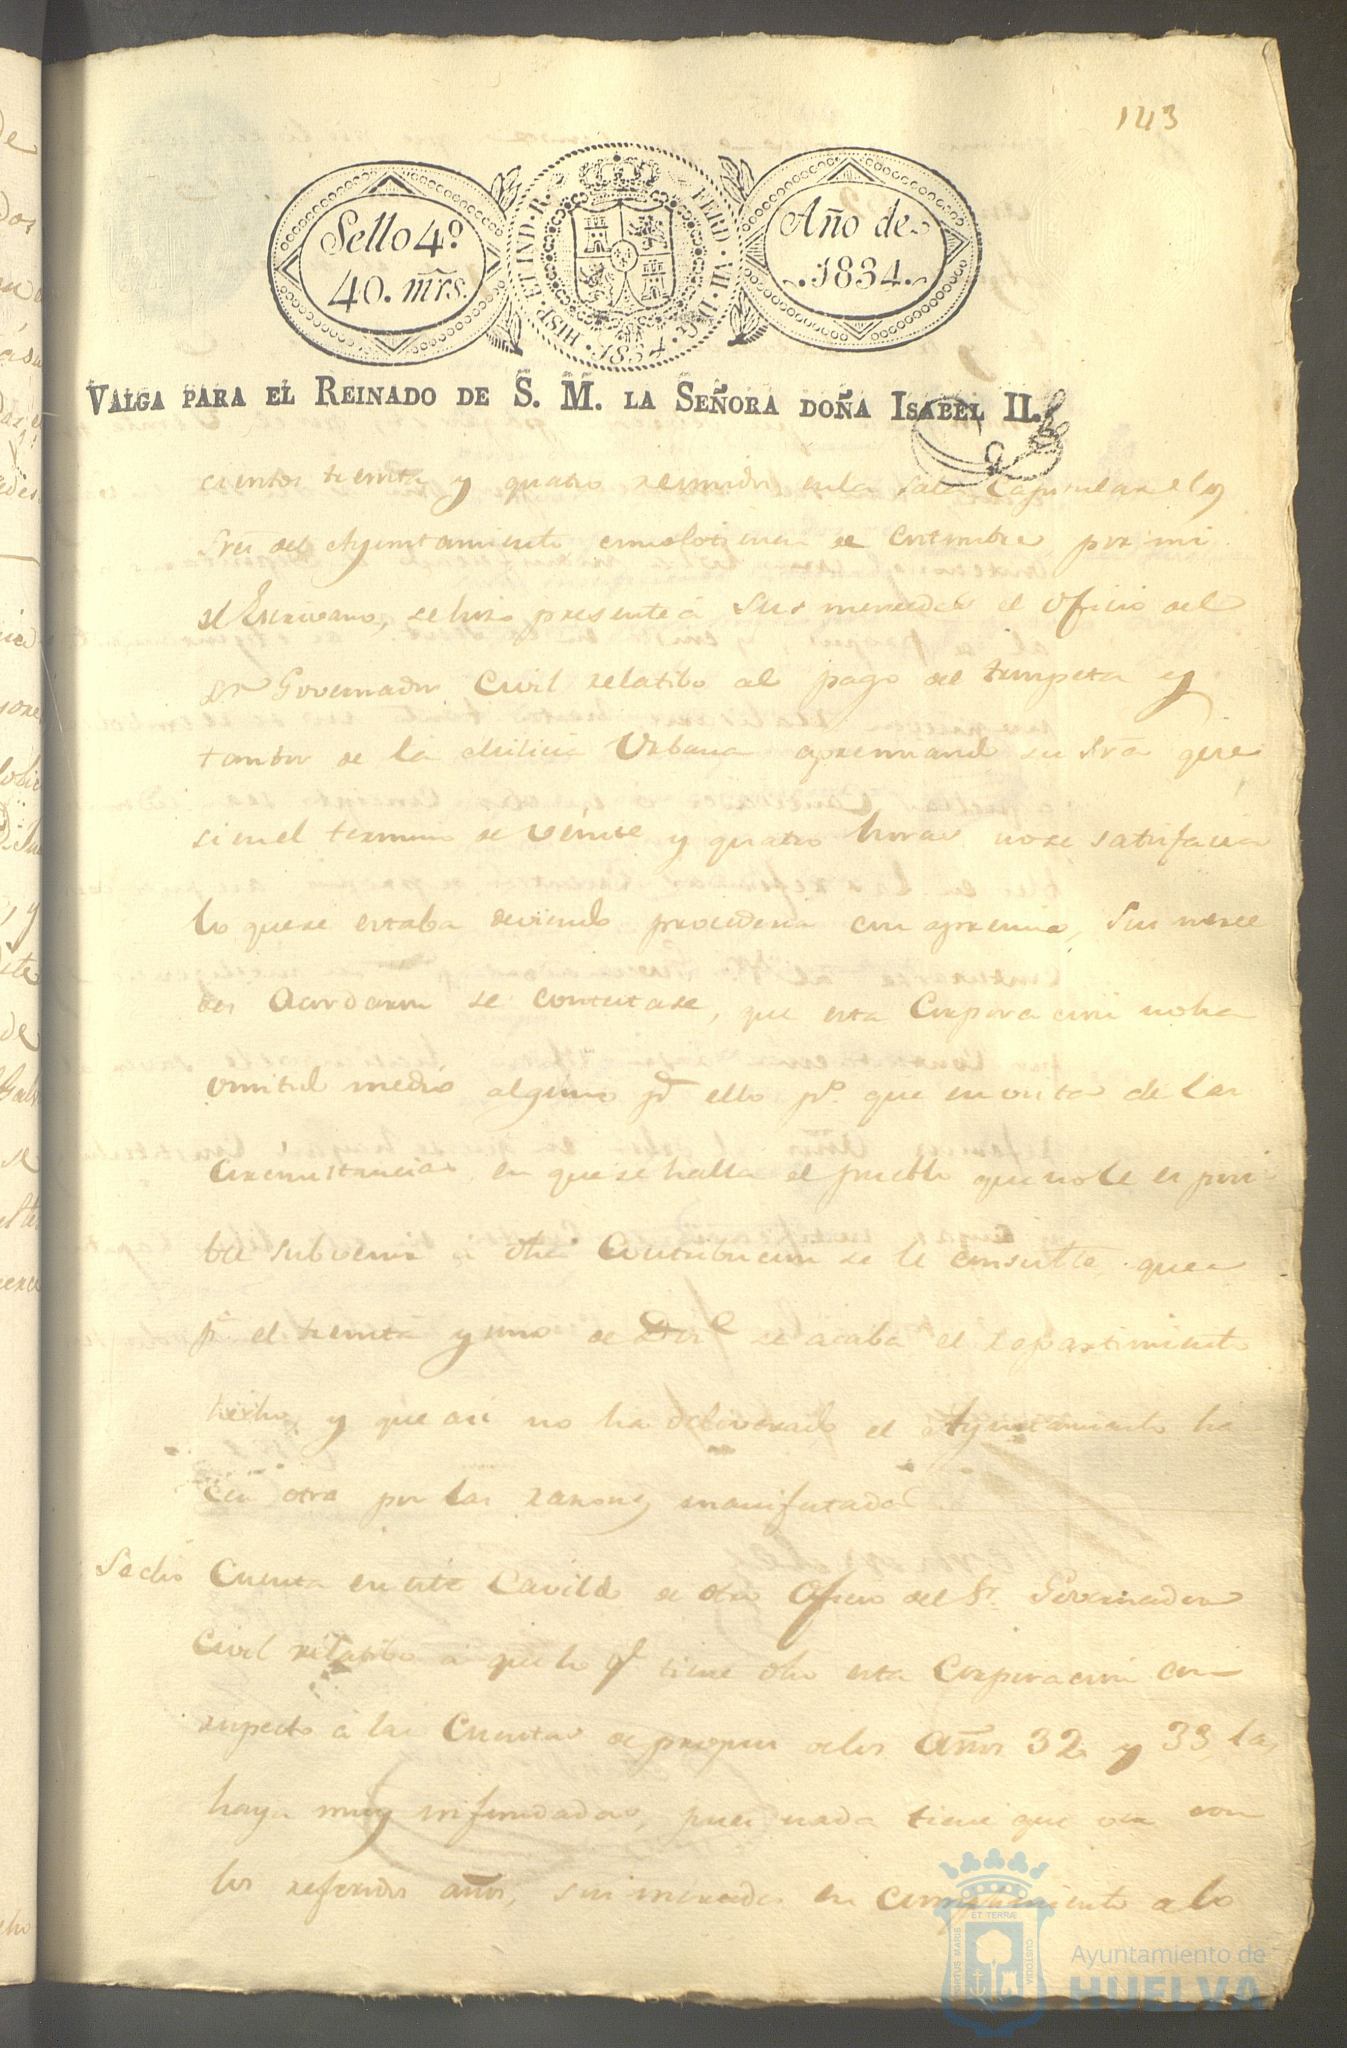 143
Sello 4º
40. mrs.
HISP. ET IND. R. FERD. VII. D. G. 1834.
Año de
1834.
VALGA PARA EL REINADO DE S. M. LA SEÑORA DOÑA ISABEL II.
cientos treinta y quatro reunidos en la Sala Capitular los
Sres del Ayuntamiento como lo tienen de Costumbre por mi
el Escrivano, se hizo presente á Sus mercedes el Oficio del
Sr Governador Civil relatibo al pago del trompeta y
tambor de la Milicia Urbana apremiand su Sria que
si en el termino de veinte y quatro horas no se satisfacia
lo que se estaba deviendo procederia con apremio, Sus merce
des Acordaron se contestase, que esta Corporacion no ha
omitido medio alguno pa ello po. que en vista de las
circunstancias en que se halla el pueblo que no le es posi
ble subvenir á otra Contribucion se le consulta, que
pa el treinta y uno de Dice se acaba el repartimiento
hecho, y que asi no ha deliverado el Ayuntamiento ha
cer otra por las razones manifestadas.
Se dió Cuenta en este Cavildo de otro Oficio del Sr. Governador
Civil relatibo á que lo qe tiene dho esta Corporacion con
respecto á las Cuentas de propios de los Años 32 y 33, las
haya muy infundadas, pues nada tiene que ver con
los referidos años, sus mercedes en cumplimiento a lo
PORTUS MARIS ET TERRÆ CUSTODIA
Ayuntamiento de
HUELVA